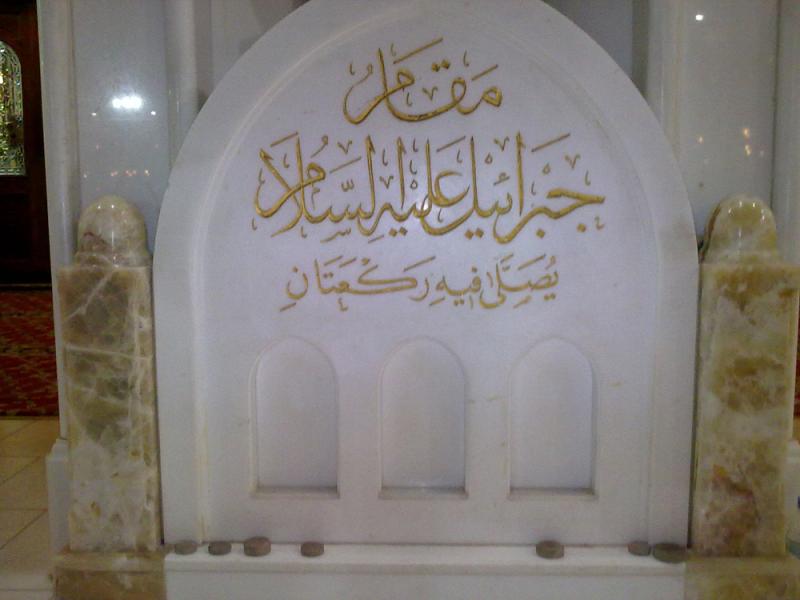 مَقَام
جَبْرَائِيل عَلَيْهِ السَّلَام
يُصَلَّى فِيهِ رَكْعَتَانِ